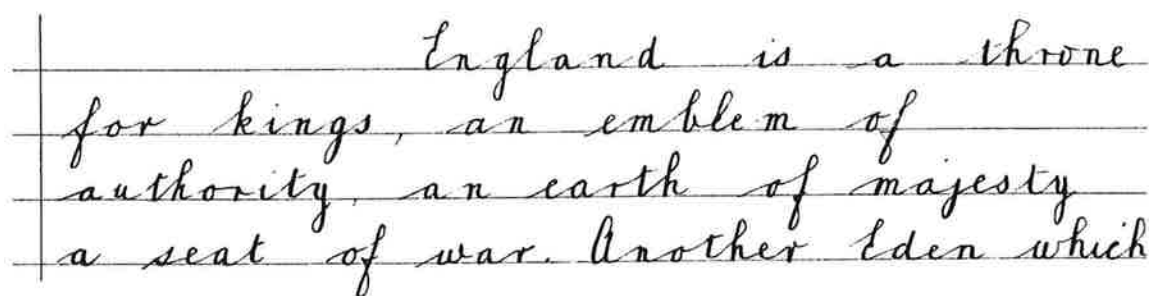 England is a throne
for kings, an emblem of
authority, an earth of majesty
a seat of war. Another Eden which